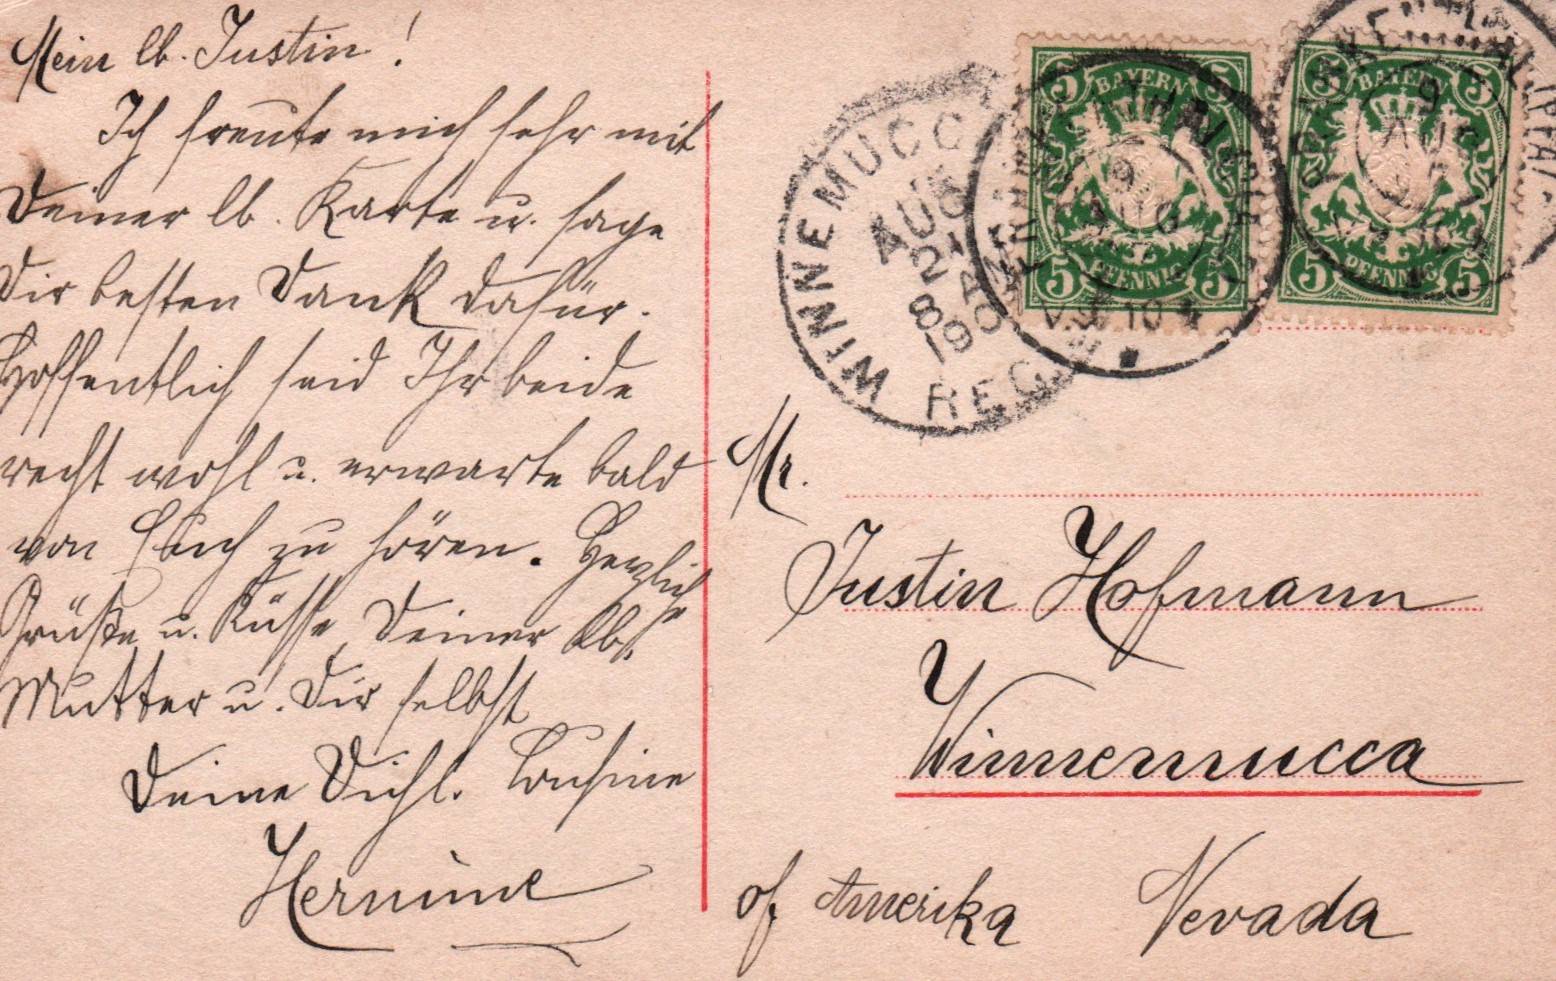 Mein lb. Justin!
Ich freute mich sehr mit
Deiner lb. Karte u. sage
Dir besten Dank dafür.
Hoffentlich seid Ihr beide
recht wohl u. erwarte bald
von Euch zu hören. Herzliche
Grüße u. Küsse Deiner lb.
Mutter u. Dir selbst
Deine Cousine
Hermine
WINNEMUCCA
AUG
21
8 A
190
REC'D
5 BAYERN 5
5 PFENNIG 5
9
AUG
5 BAYERN 5
5 PFENNIG 5
FRANKENTHAL (PFALZ)
9
AUG
Mr.
Justin Hofmann
Winnemucca
of Amerika Nevada